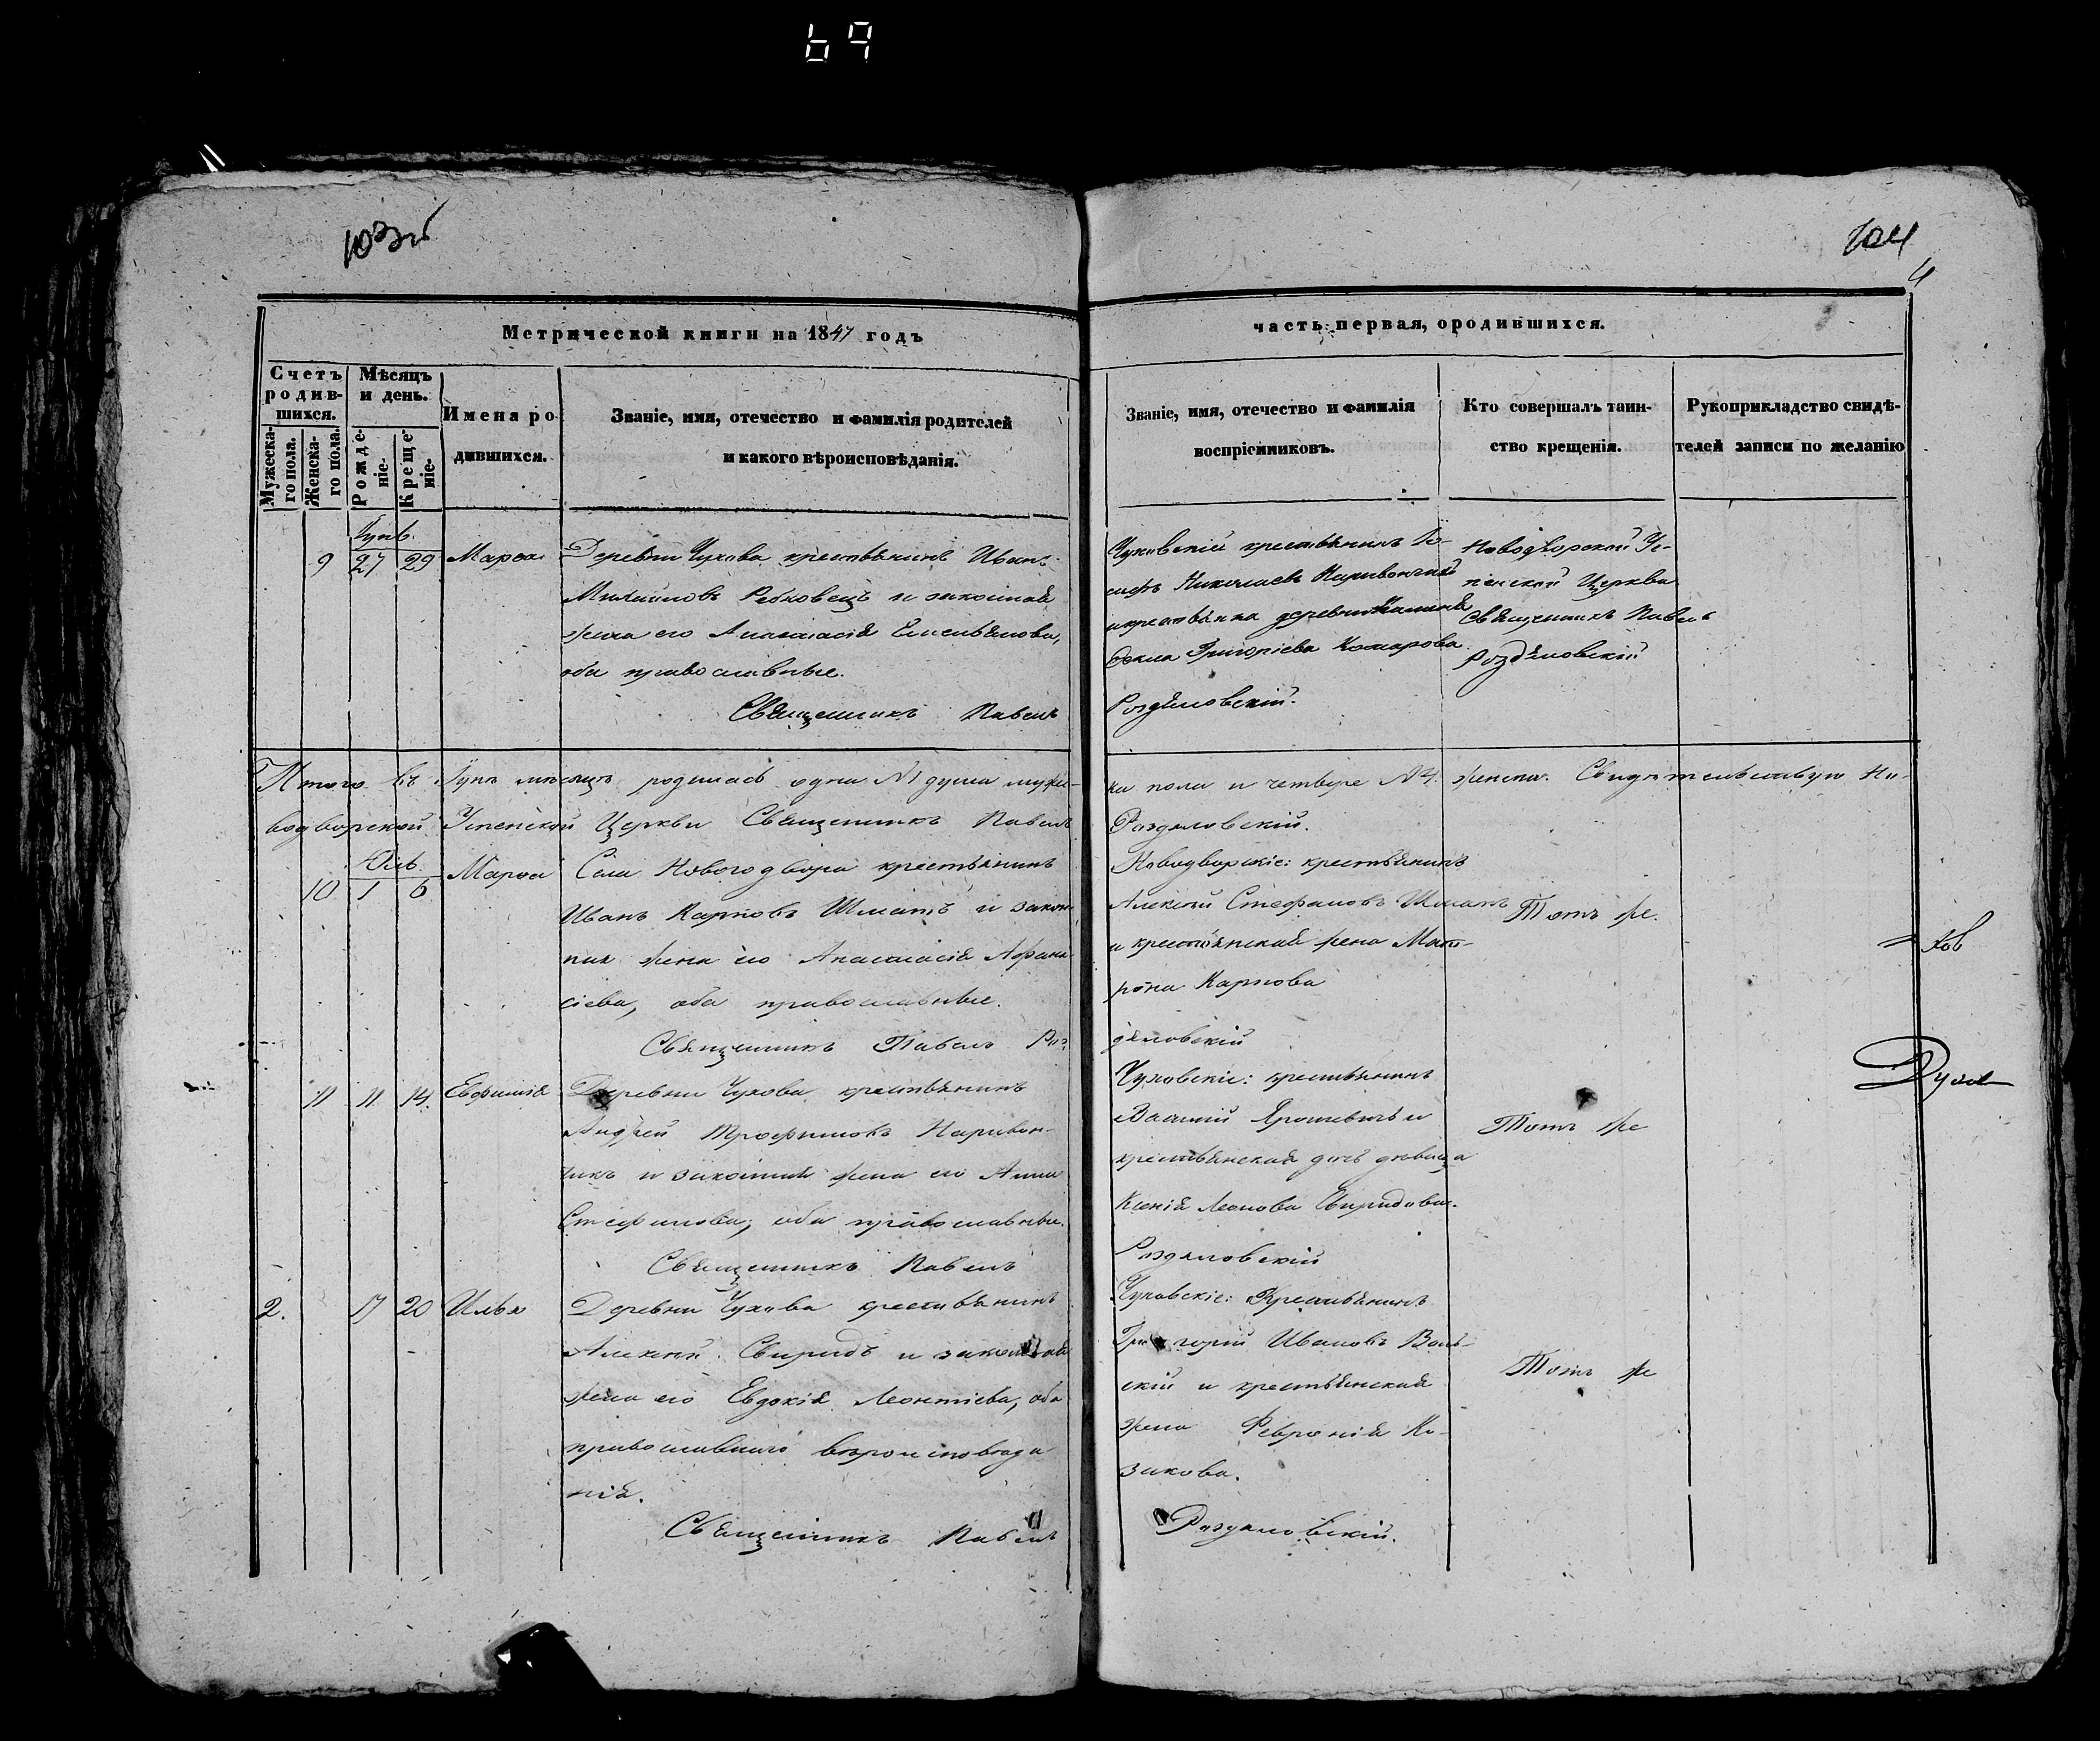 69
103 об
104
4
Метрической книги на 1847 годъ
часть первая, ородившихся.
Счетъ родив-
шихся.
Мужеска-
го пола.
Женска-
го пола.
Мѣсяцъ
и день.
Рожде-
ніе.
Креще-
ніе.
Имена ро-
дившихся.
Званіе, имя, отечество и фамилія родителей
и какого вѣроисповѣданія.
Званіе, имя, отечество и фамилія
воспріемниковъ.
Кто совершалъ таин-
ство крещенія.
Рукоприкладство свидѣ-
телей записи по желанію
Іунь.
9 27 29 Марѳа
Деревни Чухова крестьянинъ Иванъ
Михайловъ Рабковецъ и законная
жена его Анастасія Емельянова,
оба православные.
Священникъ Павелъ
Чуховскій крестьянинъ Іо-
сифъ Николаевъ Наривончикъ
и крестьянка деревни
Ѳекла Григоріева Комарова
Роздяловскій.
Новодворской Ус-
пенской Церкви
Священникъ Павелъ
Роздяловскій
Итого въ Іунѣ мѣсяцѣ родилась одна №1 душа муже-
ска пола и четыре №4. женска. Свидѣтельствую Но-
водворской Успенской Церкви Священникъ Павелъ
Роздяловскій.
Юль
10 1 6 Марѳа
Села Новогодвора крестьянинъ
Иванъ Карповъ Шматъ и закон-
ная жена его Анастасія Афана-
сіева, оба православные.
Священникъ Павелъ Роз-
Новодворскіе: крестьянинъ
Алексѣй Стефановъ Шматъ
и крестьянская жена Мат-
рона Карпова
дяловскій
Тотъ же.
ков
11 11 14. Евфимія
Деревни Чухова крестьянинъ
Андрей Трофимовъ Наривон-
чикъ и законная жена его Анна
Стефанова, оба православные.
Священникъ Павелъ
Чуховскіе: крестьянинъ
Василій Ярошевичъ и
крестьянская дочь дѣвица
Ксенія Леонова Свиридова.
Роздяловскій
Тотъ же
2. 17 20 Илья
Деревни Чухова крестьянинъ
Алексѣй Свиридъ и законная
жена его Евдокія Леонтіева, оба
православнаго вѣроисповѣда
нія.
Священникъ Павелъ
Чуховскіе: Крестьянинъ
Григорій Ивановъ Воль-
скій и крестьянская
жена Февронія Ко-
закова.
Роздяловскій.
Тотъ же